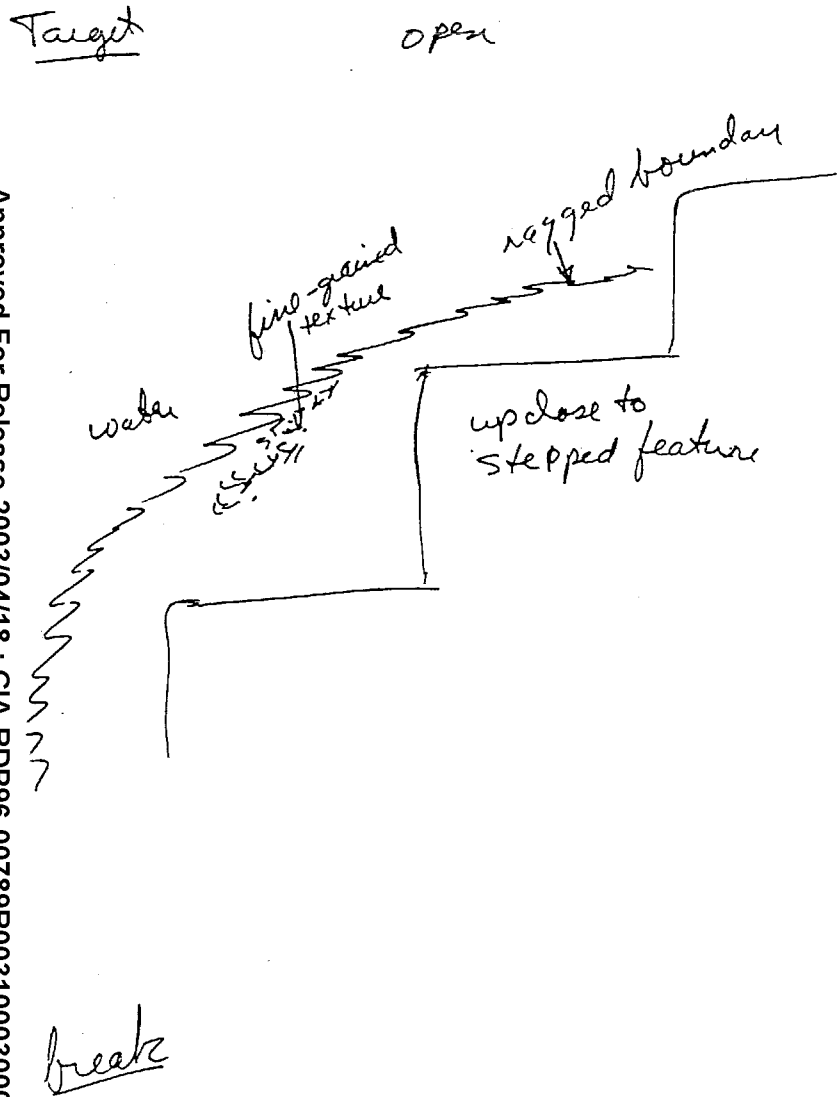 Target
open
ragged boundary
fine-grained
texture
water
up close to
stepped feature
break
Approved For Release 2003/04/18 : CIA-RDP96-00789R003100030001